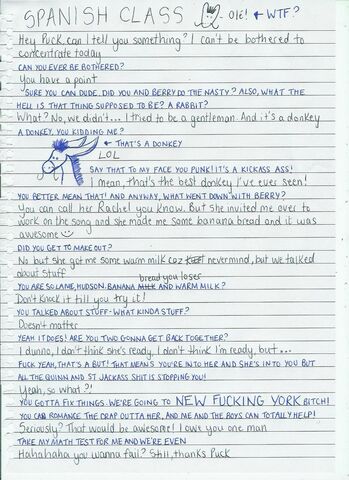 SPANISH CLASS - Olé! ← WTF?
Hey Puck, can I tell you something? I can't be bothered to
concentrate today
CAN YOU EVER BE BOTHERED?
You have a point
SURE YOU CAN DUDE. DID YOU AND BERRY DO THE NASTY? ALSO, WHAT THE
HELL IS THAT THING SUPPOSED TO BE? A RABBIT?
What? No, we didn't... I tried to be a gentleman. And it's a donkey
A DONKEY, YOU KIDDING ME?
← THAT'S A DONKEY
LOL
SAY THAT TO MY FACE YOU PUNK! IT'S A KICKASS ASS!
I mean, that's the best donkey I've ever seen!
YOU BETTER MEAN THAT! AND ANYWAY, WHAT WENT DOWN WITH BERRY?
You can call her Rachel you know. But she invited me over to
work on the song and she made me some banana bread and it was
awesome
DID YOU GET TO MAKE OUT?
No but she got me some warm milk coz nevermind, but we talked
about stuff
bread you loser
YOU ARE SO LAME, HUDSON. BANANA MILK AND WARM MILK?
Don't knock it till you try it!
YOU TALKED ABOUT STUFF - WHAT KINDA STUFF?
Doesn't matter
YEAH IT DOES! ARE YOU TWO GONNA GET BACK TOGETHER?
I dunno, I don't think she's ready, I don't think I'm ready, but...
FUCK YEAH, THAT'S A BUT! THAT MEANS YOU'RE INTO HER AND SHE'S INTO YOU BUT
ALL THE QUINN AND ST JACKASS SHIT IS STOPPING YOU!
Yeah, so what?!
YOU GOTTA FIX THINGS. WE'RE GOING TO NEW FUCKING YORK BITCH!
YOU CAN ROMANCE THE CRAP OUTTA HER, AND ME AND THE BOYS CAN TOTALLY HELP!
Seriously? That would be awesome! I owe you one man
TAKE MY MATH TEST FOR ME AND WE'RE EVEN
Hahahaha you wanna fail? Still, thanks Puck